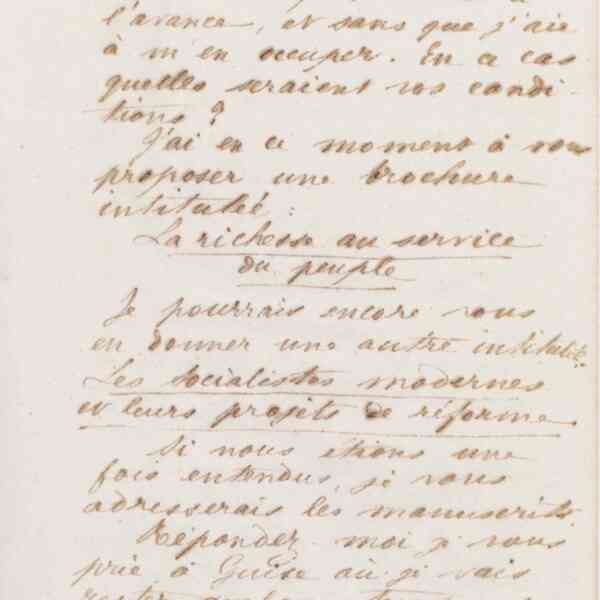 l'avance, et sans que j'aie
à m'en occuper. En ce cas
quelles seraient vos condi-
tions ?
J'ai en ce moment à vous
proposer une brochure
intitulée :
La richesse au service
du peuple
Je pourrais encore vous
en donner une autre intitulée :
Les socialistes modernes
et leurs projets de réforme.
Si nous étions une
fois entendus, je vous
adresserais les manuscrits.
Répondez-moi je vous
prie à Guise où je vais
rester